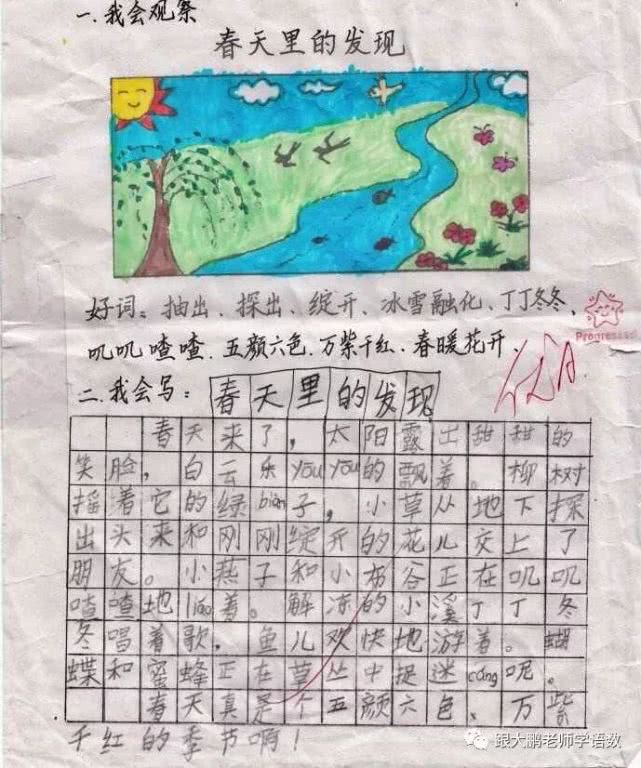 一.我会观察
春天里的发现
好词：抽出、探出、绽开、冰雪融化、丁丁冬冬、
叽叽喳喳、五颜六色、万紫千红、春暖花开、
Progress
优A
二.我会写：春天里的发现
春天来了，太阳露出甜甜的
笑脸，白云乐yōuyōu的飘着。柳树
摇着它的绿biàn子，小草从地下探
出头来和刚刚绽开的花儿交上了
朋友。小燕子和小布谷正在叽叽
喳喳地liáo着。解冻的小溪丁丁冬
冬唱着歌，鱼儿欢快地游着。蝴
蝶和蜜蜂正在草丛中捉迷cáng呢。
春天真是个五颜六色、万紫
千红的季节啊！
跟大鹏老师学语数